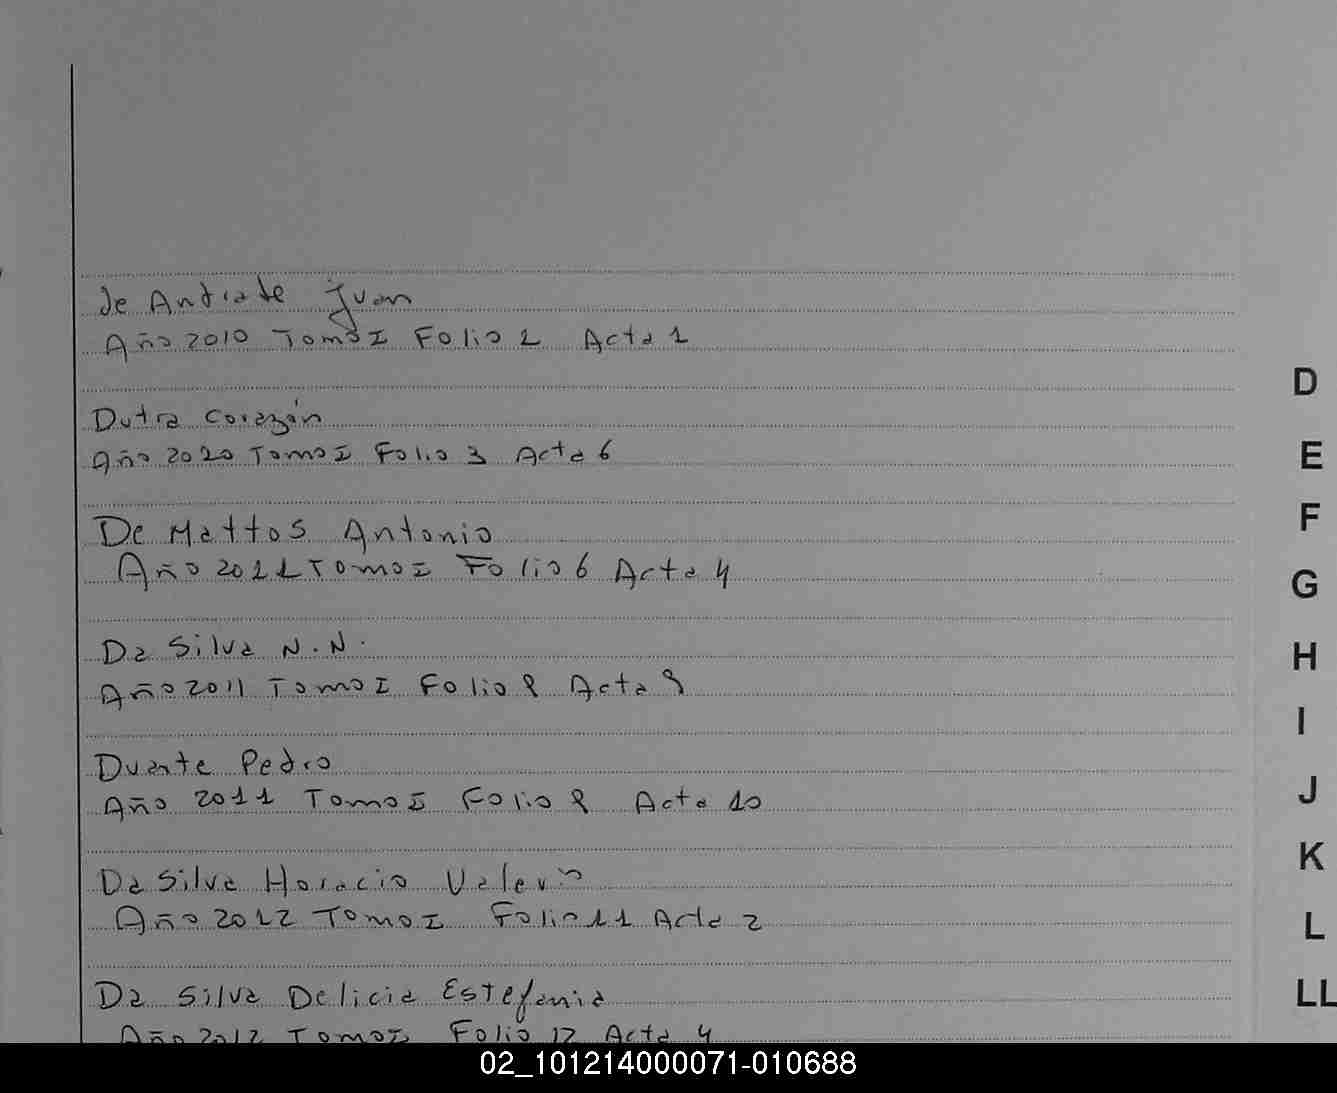 de Andrade Juan
Año 2010 Tomo I Folio 2 Acta 1
Dutra Corazón
Año 2020 Tomo I Folio 3 Acta 6
De Mattos Antonio
Año 2011 Tomo I Folio 6 Acta 4
Da Silva N.N.
Año 2011 Tomo I Folio 8 Acta 9
Duarte Pedro
Año 2011 Tomo I Folio 8 Acta 10
Da Silva Horacio
Año 2012 Tomo I Folio 11 Acta 2
Da Silva Delicia Estefania
Año 2012 Tomo I Folio 12 Acta 4
D
E
F
G
H
I
J
K
L
LL
02_101214000071-010688